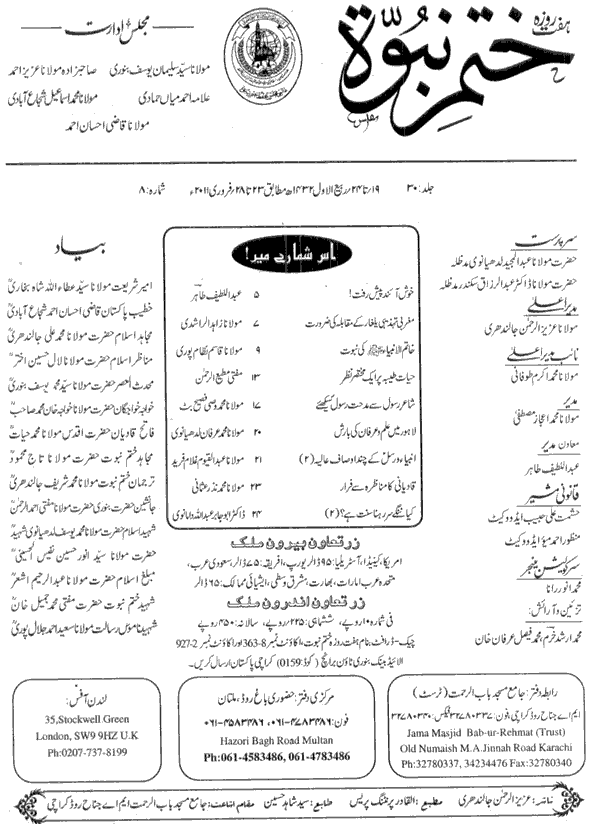 ہفت روزہ
ختم نبوۃ
مجلس ادارت
مولانا سید سلیمان یوسف بنوری صاحبزادہ مولانا عزیز احمد
علامہ احمد میاں حمادی مولانا محمد اسماعیل شجاع آبادی
مولانا قاضی احسان احمد
جلد: ۳۰ ۱۹ تا ۲۴/ ربیع الاول ۱۴۳۲ھ مطابق ۲۳ تا ۲۸/ فروری ۲۰۱۱ء شمارہ: ۸
سرپرست
حضرت مولانا عبدالمجید لدھیانوی مدظلہ
حضرت مولانا ڈاکٹر عبدالرزاق سکندر مدظلہ
مدیر اعلیٰ
مولانا عزیز الرحمٰن جالندھری
نائب مدیر اعلیٰ
مولانا محمد اکرم طوفانی
مدیر
مولانا محمد اعجاز مصطفیٰ
معاون مدیر
عبداللطیف طاہر
قانونی مشیر
حشمت علی حبیب ایڈووکیٹ
منظور احمد میو ایڈووکیٹ
سرکولیشن منیجر
محمد انور رانا
تزئین و آرائش:
محمد ارشد خرم، محمد فیصل عرفان خان
اس شمارے میں!
خوش آئند پیش رفت! ۵ عبداللطیف طاہر
مغربی تہذیبی یلغار کے مقابلہ کی ضرورت ۷ مولانا زاہد الراشدی
خاتم الانبیاء ﷺ کی نبوت ۹ مولانا قاسم نظام پوری
حیات طیبہ پر ایک مختصر نظر ۱۳ مفتی مطیع الرحمٰن
شاعر رسول سے مدحت رسول سیکھئے ۱۷ مولانا محمد وصی فصیح بٹ
لاہور میں علم و عرفان کی بارش ۲۰ مولانا محمد عرفان لدھیانوی
انبیاء و رسل کے چند اوصاف عالیہ (۲) ۲۱ مولانا عبدالقیوم غلام فرید
قادیانی کا مناظرہ سے فرار ۲۳ مولانا محمد نذر عثمانی
کیا ننگے سر رہنا سنت ہے؟ (۲) ۲۴ ڈاکٹر ابو جابر عبداللہ دامانوی
زر تعاون بیرون ملک
امریکا، کینیڈا، آسٹریلیا: ۹۵ ڈالر یورپ، افریقہ: ۷۵ ڈالر، سعودی عرب،
متحدہ عرب امارات، بھارت، مشرق وسطیٰ، ایشیائی ممالک: ۶۵ ڈالر
زر تعاون اندرون ملک
فی شمارہ ۱۰ روپے، ششماہی: ۲۲۵ روپے، سالانہ: ۴۵۰ روپے
چیک-ڈرافٹ بنام ہفت روزہ ختم نبوت، اکاؤنٹ نمبر 8-363 اور اکاؤنٹ نمبر 2-927
الائیڈ بینک بنوری ٹاؤن برانچ (کوڈ: 0159) کراچی پاکستان ارسال کریں۔
بیاد
امیر شریعت مولانا سید عطاء اللہ شاہ بخاریؒ
خطیب پاکستان قاضی احسان احمد شجاع آبادیؒ
مجاہد اسلام حضرت مولانا محمد علی جالندھریؒ
مناظر اسلام حضرت مولانا لال حسین اخترؒ
محدث العصر حضرت مولانا سید محمد یوسف بنوریؒ
خواجہ خواجگان حضرت مولانا خواجہ خان محمد صاحبؒ
فاتح قادیان حضرت اقدس مولانا محمد حیاتؒ
مجاہد ختم نبوت حضرت مولانا تاج محمودؒ
ترجمان ختم نبوت حضرت مولانا محمد شریف جالندھریؒ
جانشین حضرت بنوری حضرت مولانا مفتی احمد الرحمٰنؒ
شہید اسلام حضرت مولانا محمد یوسف لدھیانوی شہیدؒ
حضرت مولانا سید انور حسین نفیس الحسینیؒ
مبلغ اسلام حضرت مولانا عبدالرحیم اشعرؒ
شہید ختم نبوت حضرت مفتی محمد جمیل خانؒ
شہید ناموس رسالت مولانا سعید احمد جلال پوریؒ
رابطہ دفتر: جامع مسجد باب الرحمت (ٹرسٹ)
ایم اے جناح روڈ کراچی، فون: ۳۲۷۸۰۳۳۷ فیکس: ۳۲۷۸۰۳۴۰
Jama Masjid Bab-ur-Rehmat (Trust)
Old Numaish M.A.Jinnah Road Karachi
Ph:32780337, 34234476 Fax:32780340
مرکزی دفتر: حضوری باغ روڈ، ملتان
فون: ۰۶۱-۴۷۸۳۴۸۶، ۰۶۱-۴۵۸۳۴۸۶
Hazori Bagh Road Multan
Ph:061-4583486, 061-4783486
لندن آفس:
35,Stockwell Green
London, SW9 9HZ U.K
Ph:0207-737-8199
ناشر: عزیز الرحمٰن جالندھری مطبع: القادر پرنٹنگ پریس طابع: سید شاہد حسین مقام اشاعت: جامع مسجد باب الرحمت ایم اے جناح روڈ کراچی